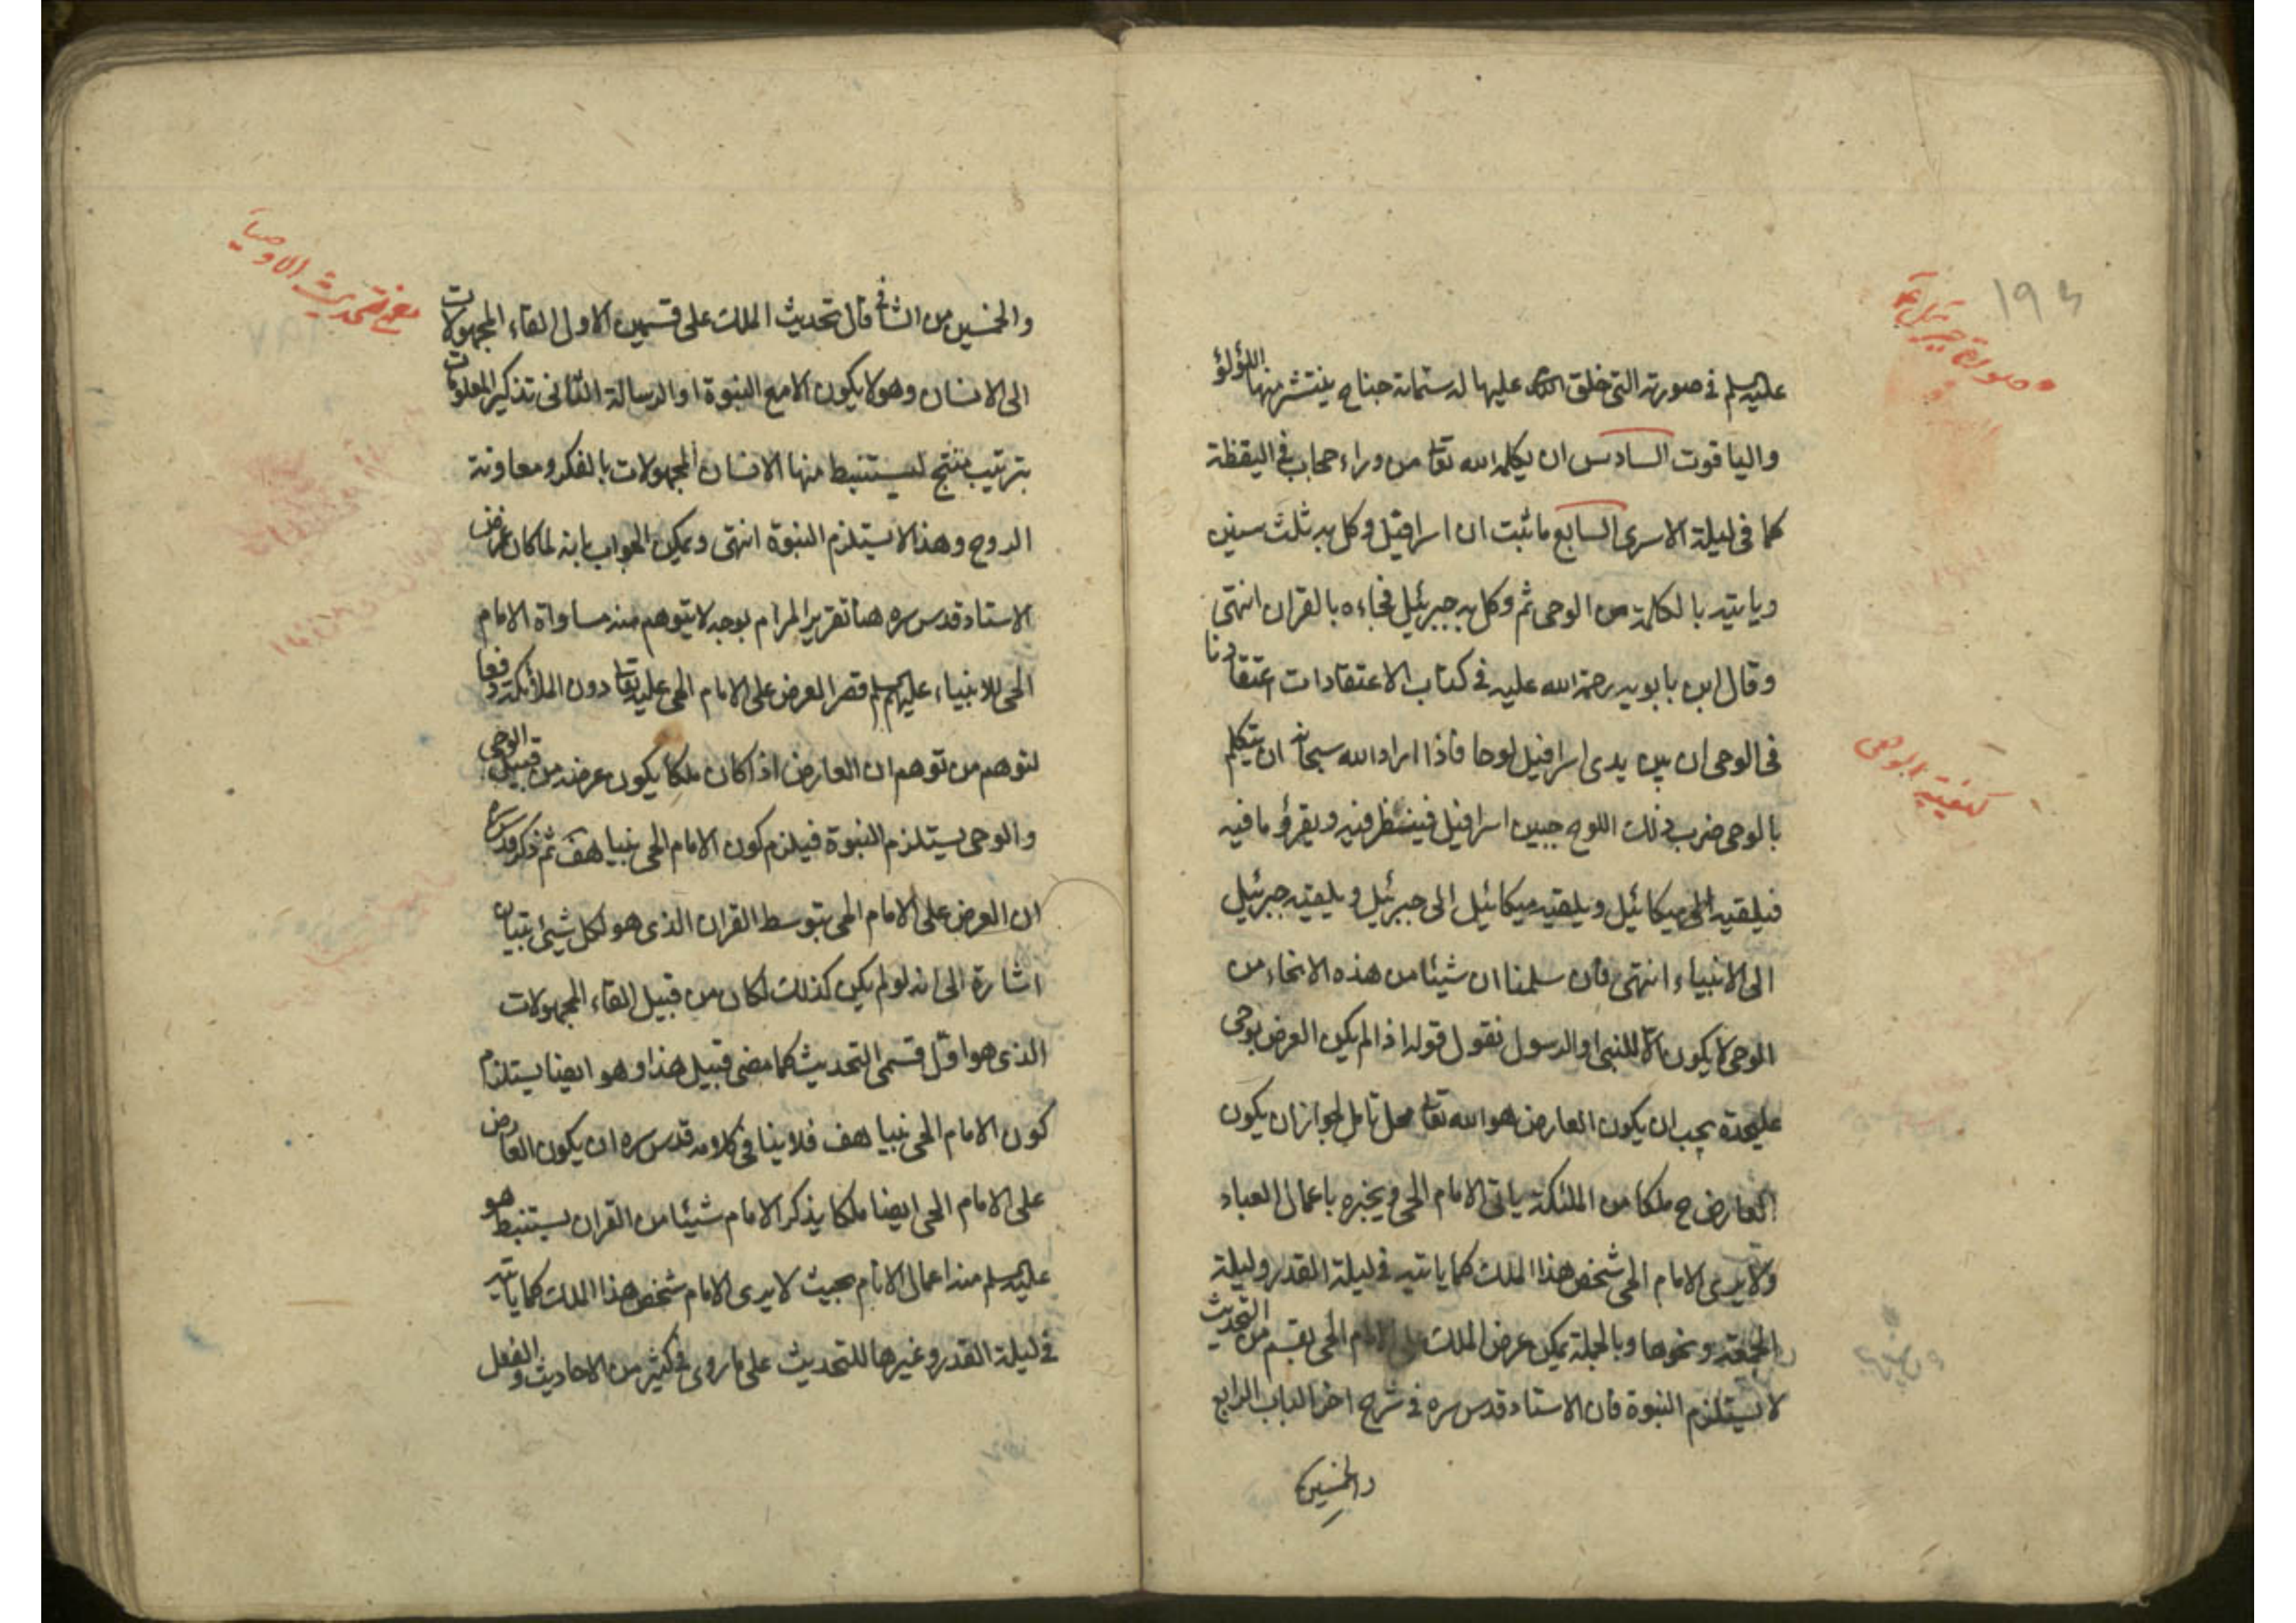 ١٩٤
وصورة جبرئيل ع
عليه سلم في صورته التي خلق الله عليها له ستمائة جناح ينتشر منها اللؤلؤ
والياقوت السادس ان يكلمه الله تعا من وراء حجاب في اليقظة
كما في ليلة الاسرى السابع ما ثبت ان اسرافيل وكل به ثلث سنين
وياتيه بالكلمة من الوحى ثم وكل به جبرئيل فجاءه بالقران انتهى
وقال ابن بابويه رحمة الله عليه في كتاب الاعتقادات اعتقادنا
في الوحى ان بين يدى اسرافيل لوحا فاذا اراد الله سبحانه ان يتكلم
كيفية الوحى
بالوحى ضرب ذلك اللوح جبين اسرافيل فينظر فيه ويقرؤ ما فيه
فيلقيه الى ميكائيل ويلقيه ميكائيل الى جبرئيل ويلقيه جبرئيل
الى الانبياء انتهى فان سلمنا ان شيئا من هذه الانحاء من
الوحى لا يكون الا للنبى او الرسول نقول قوله اذا لم يكن العرض بوحى
عليحدة يجب ان يكون العارض هو الله تعا محل تامل لجواز ان يكون
العارض ح ملكا من الملئكة ياتى الامام الحى ويخبره باعمال العباد
ولا يرى الامام الحى شخص هذا الملك كما ياتيه في ليلة القدر وليلة
الجمعة ونحوها وبالجملة يمكن عرض الملك على الامام الحى بقسم من التحديث
لا يستلزم النبوة فان الاستاد قدس سره في شرح اخر الباب الرابع
والخمسين
معنى تحديث الاوصياء
والخمسين من الشافى قال تحديث الملك على قسمين الاول القاء المجهولات
الى الانسان وهو لا يكون الا مع النبوة او الرسالة الثانى تذكير المعلومات
بترتيب منتج ليستنبط منها الانسان المجهولات بالفكر ومعاونة
الروح وهذا لا يستلزم النبوة انتهى ويمكن الجواب بانه لما كان غرض
الاستاد قدس سره هنا تقرير المرام بوجه لا يتوهم منه مساواة الامام
الحى للانبياء عليهم سلم قصر العرض على الامام الحى عليه تعا دون الملائكة دفعا
لتوهم من توهم ان العارض اذا كان ملكا يكون عرضه من قبيل الوحى
والوحى يستلزم النبوة فيلزم كون الامام الحى نبيا هف ثم ذكر قدس سره
ان العرض على الامام الحى بتوسط القران الذى هو لكل شيئ تبيان
اشارة الى انه لو لم يكن كذلك لكان من قبيل القاء المجهولات
الذى هو اول قسمى التحديث كما مضى قبيل هذا وهو ايضا يستلزم
كون الامام الحى نبيا هف فلا ينافى كلامه قدس سره ان يكون العارض
على الامام الحى ايضا ملكا يذكر الامام شيئا من القران يستنبط هو
عليه سلم منه اعمال الانام بحيث لا يرى الامام شخص هذا الملك كما ياتيه
في ليلة القدر وغيرها للتحديث على ما روى في كثير من الاحاديث والفعل